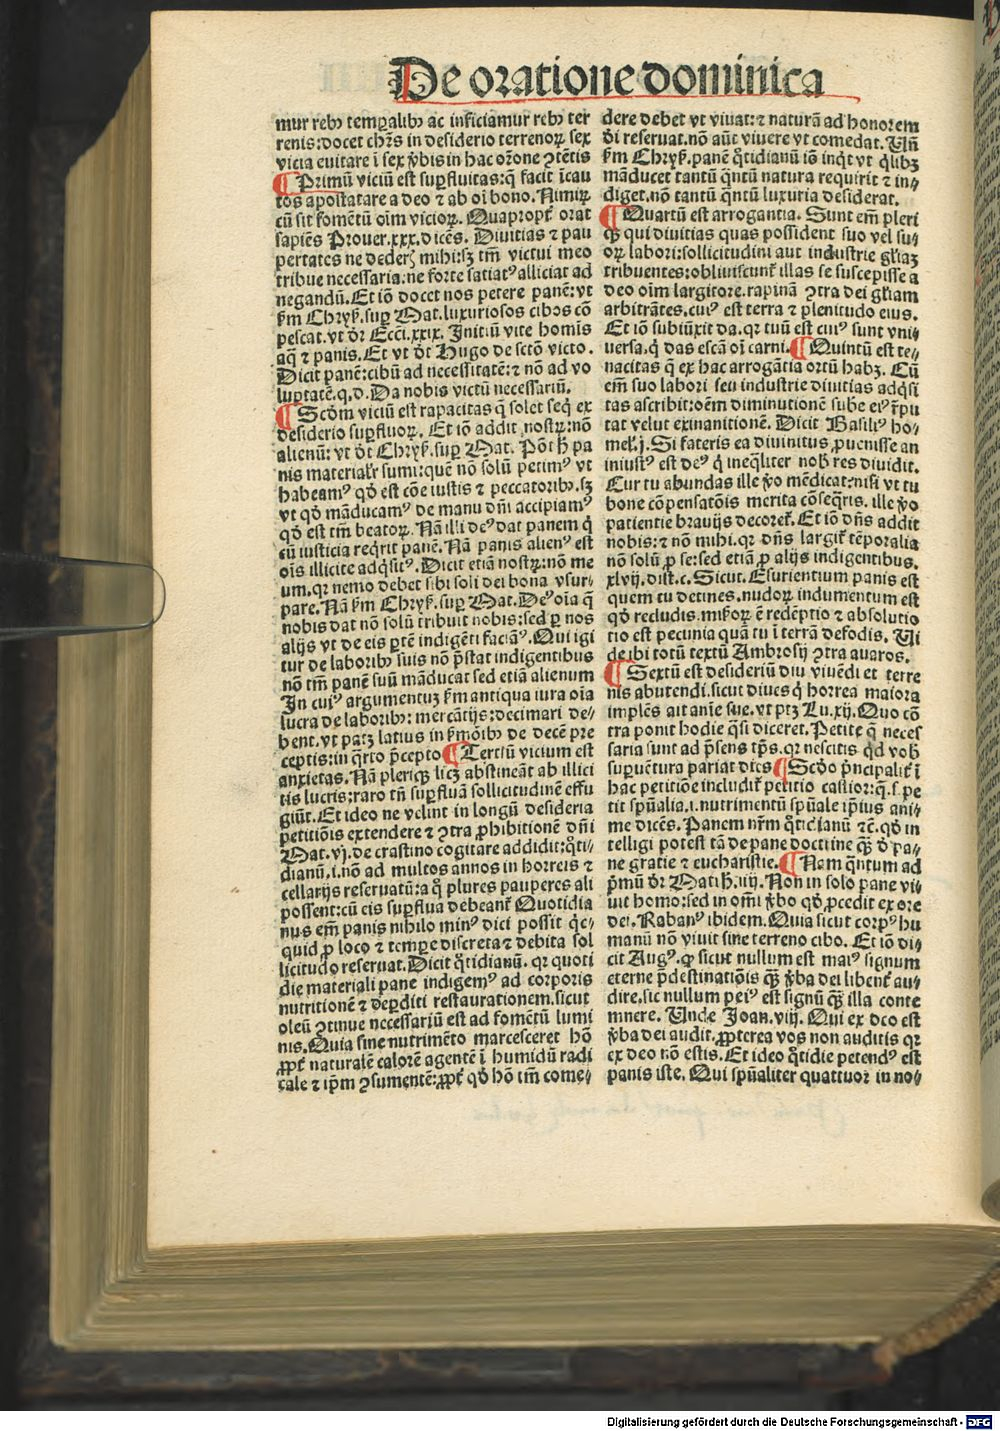 De oratione dominica
mur rebꝫ temꝑalibꝫ ac inficiamur rebꝫ ter
renis: docet chr̄s in desiderio terrenoꝝ sex
vicia euitare ī sex ꝟbis in hac or̄one ꝯtētis
¶ Primū viciū est suꝑfluitas: q̄ facit īcau
tos apostatare a deo ⁊ ab oī bono. Nimiꝝ
cū sit fomētū oīm vicioꝝ. Quapropt̄ orat
sapiēs Prouer. xxx. dicēs. Diuitias ⁊ pau
pertates ne dederꝭ mihi: sꝫ tm̄ victui meo
tribue necessaria: ne forte satiatꝰ alliciat ad
negandū. Et iō docet nos petere panē: vt
ẜm Chryẜ. suꝑ Mat. luxuriosos cibos cō
pescat. vt dr̄ Ecci. xxix. Initiū vite homis
aq̄ ⁊ panis. Et vt dt̄ Hugo de sctō victo.
Dicit panē: cibū ad necessitatē: ⁊ nō ad vo
luptatē. q. d. Da nobis victū necessariū.
¶ Scd̄m viciū est rapacitas q̄ solet seq̄ ex
desiderio suꝑfluoꝝ. Et iō addit nostꝝ: nō
alienū: vt dt̄ Chryẜ. suꝑ Mat. Pōt h̄ pa
nis materialr̄ sumi: quē nō solū petimꝰ vt
habeamꝰ qd̄ est cōe iustis ⁊ peccatoribꝫ. sꝫ
vt qd̄ māducamꝰ de manu dn̄i accipiamꝰ
qd̄ est tm̄ beatoꝝ. Nā illi deꝰ dat panem q̇
cū iusticia req̇rit panē. Nā panis alienꝰ est
oīs illicite adq̇sitꝰ. Dicit etiā nostꝝ: nō me
um. qꝛ nemo debet sibi soli dei bona vsur⸗
pare. Nā ẜm Chryẜ. suꝑ Mat. Deꝰ oīa q̄
nobis dat nō solū tribuit nobis: sed ꝑ nos
alijs vt de eis ꝑtē indigēti faciāꝰ. Qui igi
tur de laboribꝫ suis nō p̄stat indigentibus
nō tm̄ panē suū māducat sed etiā alienum
In cuiꝰ argumentuꝫ ẜm antiqua iura oīa
lucra de laboribꝫ: mercātijs: decimari de⸗
bent. vt patꝫ latius in ẜmōibꝫ de decē pre
ceptis: in q̇rto p̄cepto ¶ Tertiū vicium est
anxietas. Nā pleriqꝫ licꝫ abstineāt ab illici
tis lucris: raro tn̄ suꝑfluā sollicitudinē effu
giūt. Et ideo ne velint in longū desideria
petitiōis extendere ⁊ ꝯtra ꝓhibitionē dn̄i
Mat. vj. de crastino cogitare addidit: q̊ti⸗
dianū. i. nō ad multos annos in horreis ⁊
cellarijs reseruatū: a q̊ plures pauperes ali
possent: cū eis suꝑflua debeant̄ Quotidia
nus em̄ panis nihilo minꝰ dici possit qc̄⸗
quid ꝓ loco ⁊ temꝑe discreta ⁊ debita sol
licitudo reseruat. Dicit q̊tidianū. qꝛ quoti
die materiali pane indigemꝰ ad corporis
nutritionē ⁊ deꝑditi restaurationem. sicut
oleū ꝯtinue necessariū est ad fomētū lumi
nis. Quia sine nutrimēto marcesceret hō
ꝓpt̄ naturalē calorē agentē ī humidū radi
cale ⁊ ip̄m ꝯsumentē: ꝓpt̄ qd̄ hō tm̄ come⸗
dere debet vt viuat: ⁊ naturā ad honorem
dī reseruat. nō aūt viuere vt comedat. Vn̄
ẜm Chryẜ. panē q̊tidianū iō inq̇t vt q̇libꝫ
māducet tantū q̄ntū natura requirit ⁊ in⸗
diget. nō tantū q̄ntū luxuria desiderat.
¶ Quartū est arrogantia. Sunt em̄ pleri
qꝫ qui diuitias quas possident suo vel su⸗
oꝝ labori: sollicitudini aut industrie gl̄iaꝫ
tribuentes: obliuiscunt̄ illas se suscepisse a
deo oīm largitore. rapinā ꝯtra dei gl̄iam
arbitrātes. cuiꝰ est terra ⁊ plenitudo eius.
Et iō subiūxit da. qꝛ tuū est cuiꝰ sunt vni⸗
uersa. q̇ das escā oī carni. ¶ Quintū est te⸗
nacitas q̄ ex hac arrogātia ortū habꝫ. Cū
em̄ suo labori seu industrie diuitias adq̇si
tas ascribit: oēm diminutionē sube eiꝰ r̄pu
tat velut exinanitionē. Dicit Basiliꝰ ho⸗
mel. j. Si fateris ea diuinitus ꝓuenisse an
iniustꝰ est deꝰ q̇ ineq̄liter nob̄ res diuidit.
Cur tu abundas ille ꝟo mēdicat: nisi vt tu
bone cōpensatōis merita cōseq̄ris. ille ꝟo
patientie brauijs decoret̄. Et iō dn̄s addit
nobis: ⁊ nō mihi. qꝛ dn̄s largit̄ tēporalia
nō solū ꝓ se: sed etiā ꝓ alijs indigentibus.
xlvij. dist. c. Sicut. Esurientium panis est
quem tu detines. nudoꝝ indumentum est
qd̄ recludis. mis̄oꝝ ē redēptio ⁊ absolutio
tio est pecunia quā tu ī terrā defodis. Vi
de ibi totū textū Ambrosij ꝯtra auaros.
¶ Sextū est desideriū diu viuēdi et terre
nis abutendi. sicut diues q̇ horrea maiora
implēs ait anīe sue. vt ptꝫ Lu. xij. Quo cō
tra ponit hodie q̄si diceret. Petite q̄ neces
saria sunt ad p̄sens tp̄s. qꝛ nescitis qd̄ vob̄
suꝑuētura pariat dies ¶ Scd̄o p̄ncipalit̄ ī
hac petitiōe includit̄ petitio castior: q̄. s. pe
tit spūalia. i. nutrimentū spūale ip̄ius ani⸗
me dicēs. Panem nr̄m q̊tidianū ⁊c̄. qd̄ in
telligi potest tā de pane doctrine qꝫ̄ d̄ pa⸗
ne gratie ⁊ eucharistie. ¶ Nam q̄ntum ad
p̄mū dr̄ Math. iiij. Non in solo pane vi⸗
uit homo: sed in om̄i ꝟbo qd̄ ꝓcedit ex ore
dei. Rabanꝰ ibidem. Quia sicut corpꝰ hu
manū nō viuit sine terreno cibo. Et iō di⸗
cit Augꝰ. ꝙ sicut nullum est maiꝰ signum
eterne p̄destinatiōis qꝫ̄ ꝟba dei libent̄ au⸗
dire. sic nullum peiꝰ est signū qꝫ̄ illa conte
mnere. Unde Joan. viij. Qui ex deo est
ꝟba dei audit. ꝓpterea vos non auditis qꝛ
ex deo nō estis. Et ideo q̊tidie petendꝰ est
panis iste. Qui spūaliter quattuor in no⸗
Digitalisierung gefördert durch die Deutsche Forschungsgemeinschaft - DFG